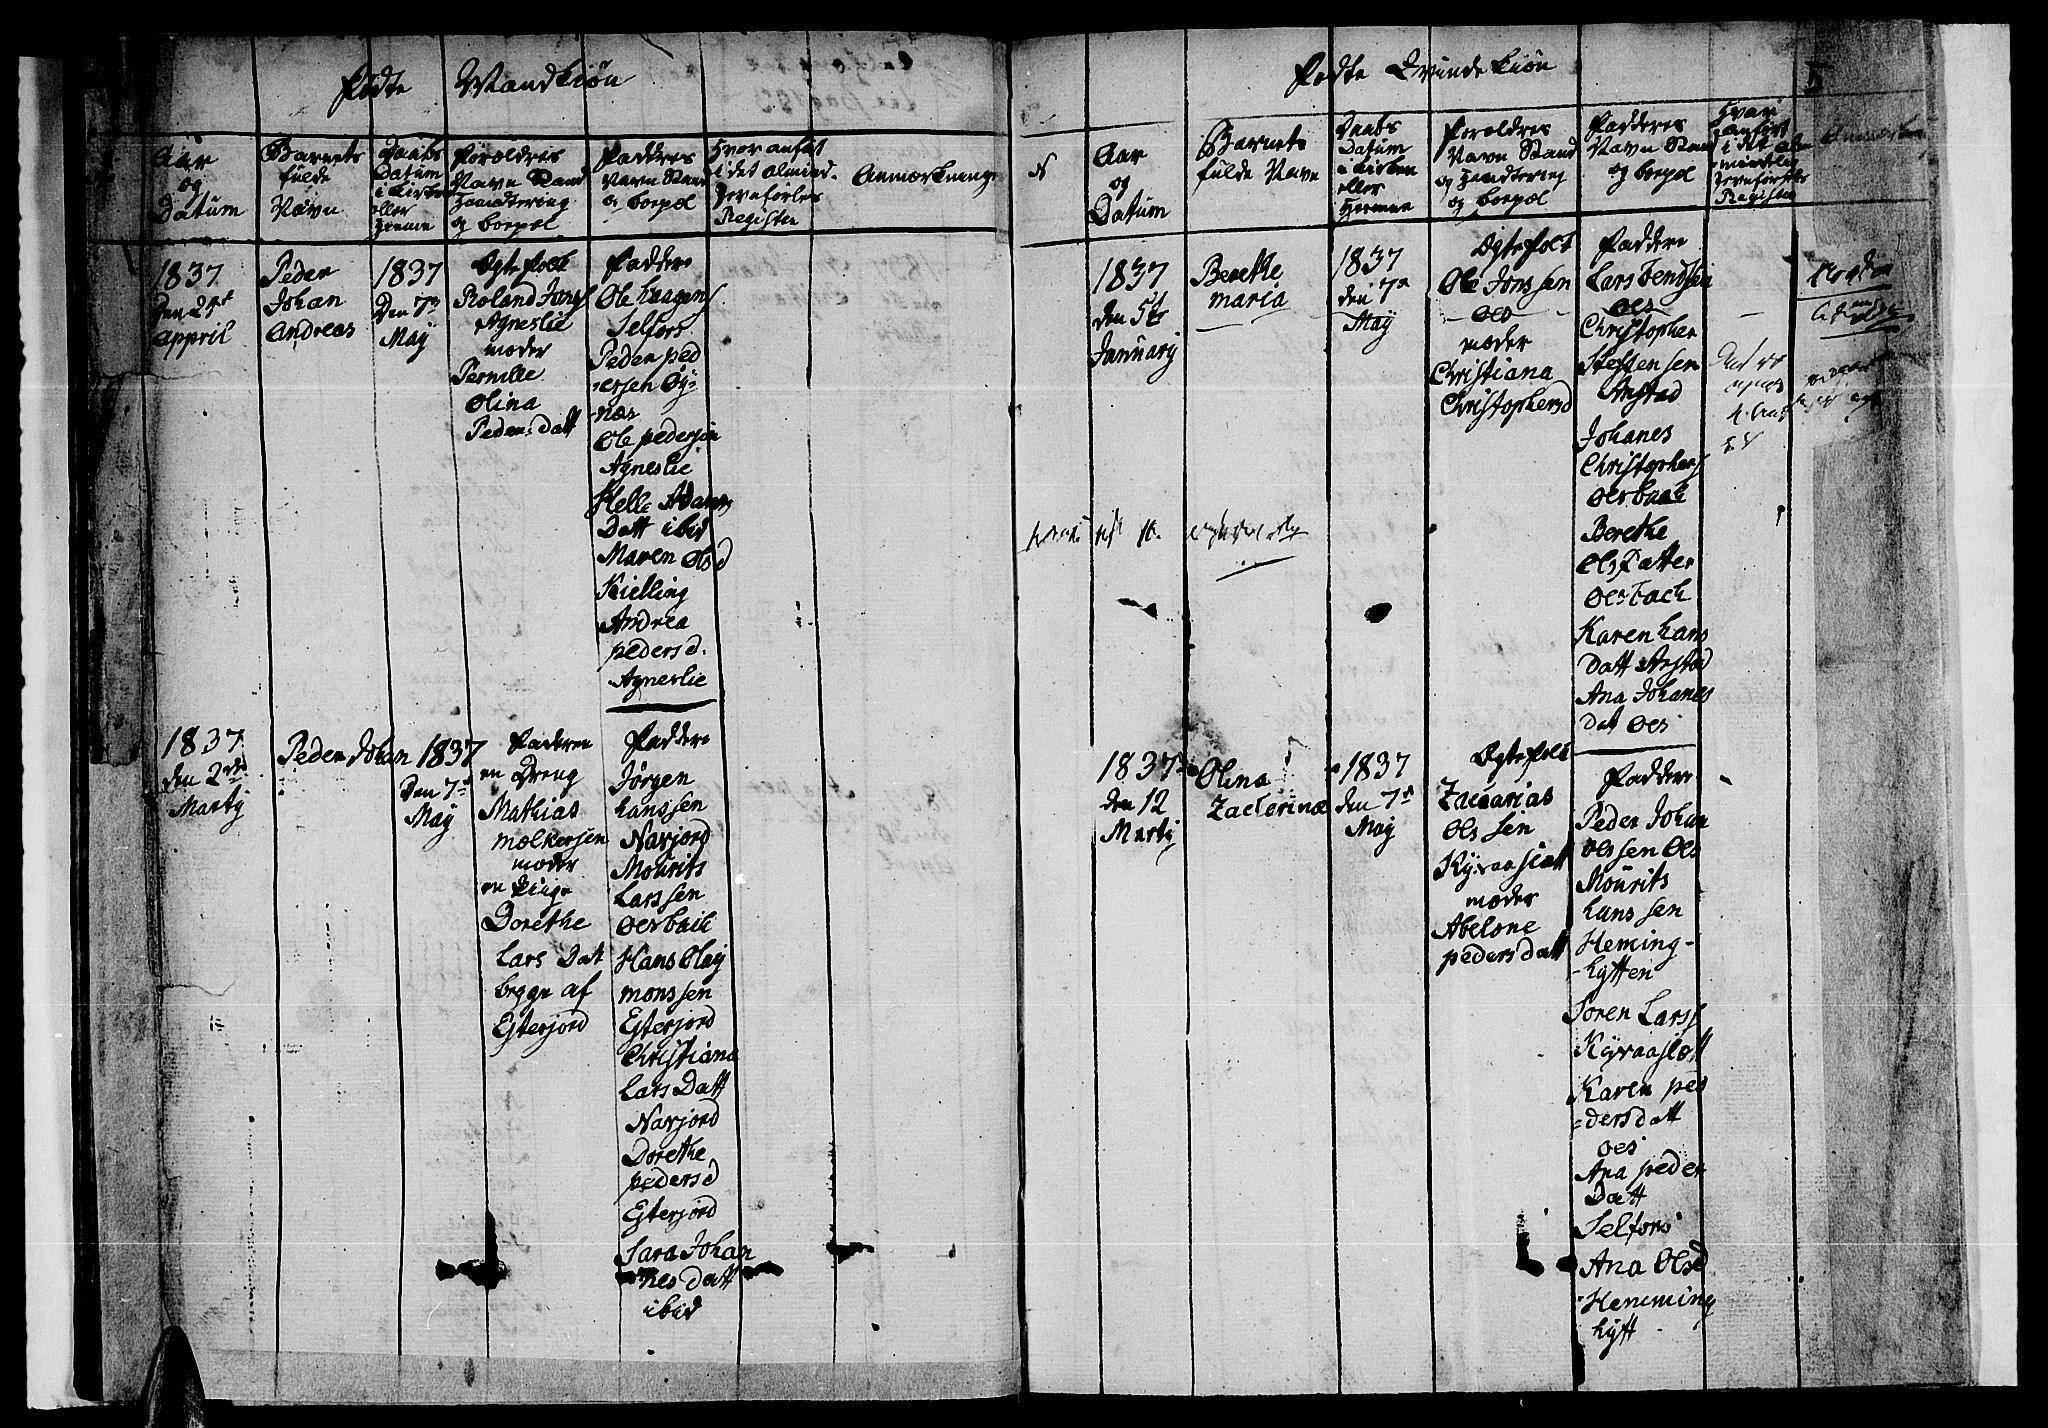 Födte Mandkiön
Aar
og
Datum
Barnets
fulde
Navn
Daabs
Datum
i Kirken
eller
Hiemme
Foroldres
Navn Stand
Handtering
og boepæl
Faddres
Navn Stand
og boepæl
Hvor anført
i det Almind.
Jevnførelses
Register
Anmærkninge
1837
Den 25de
Appril
Peder
Johan
Andreas
1837
Den 7de
May
Ægtefolk
Roland Jørgs
Agneslie
moder
Pernille
Olina
Peders Datt
Faddere
Ole Haagens
Selfors
Peder ped
ersen Øy
næs
Ole pedersen
Agneslie
Helle Adams
Datt ibid
Maren Olsd
Kielling
Andrea
pedersd.
Agneslie
1837
den 2de
Marty
Peder Johan
1837
Den 7de
May
Faderen
en Dreng
Mathias
Molkersen
moder
en Pige
Dorethe
Lars Dat
begge af
Ejterjord
Faddere
Jørgen
Hanssen
Navjord
Mourits
Larssen
Oerbach
Hans Olay
monssen
Ejterjord
Christiana
Lars Datt
Navjord
Dorethe
pedersd
Ejterjord
Sara Johan
nes Datt
ibid
Födte Qvindekiön
5
N
Aar
og
Datum
Barnets
fulde Navn
Daabs
Datum
i Kirken
eller
Hiemme
Foroldres
Navn Stand
og Handtering
og boepæl
Fadderes
Navn Stand
og boepæl
Hvor
anført
i det Al
mindelig
Jevnførels
Register
Anmærkn
1837
den 5te
January
Berethe
maria
1837
den 7de
May
Ægtefolk
Ole Jonssen
Oes
moder
Christiana
Christophersd
Faddere
Lars Bendsen
Oes
Christopher
Steffensen
Anstad
Johanes
Christophers
Oerbach
Berethe
Ols Datter
Oerbach
Karen Hans
Datt Anstad
Ana Johanes
Dat Oes
1837
den 12
Marty
Olina
Zacherina
1837
den 7de
May
Ægtefolk
Zacarias
Olssen
Kyvaaslatt
moder
Abelone
peders datt
Faddere
Peder Johan
Olssen Oes
Mourits
Hanssen
Heming-
-hytten
Soren Larss
Kyvaaslætt
Karen pe
=ders datt
Oes
Ana peder
Datt
Selfors
Ana Olsd
Hemming
hytt